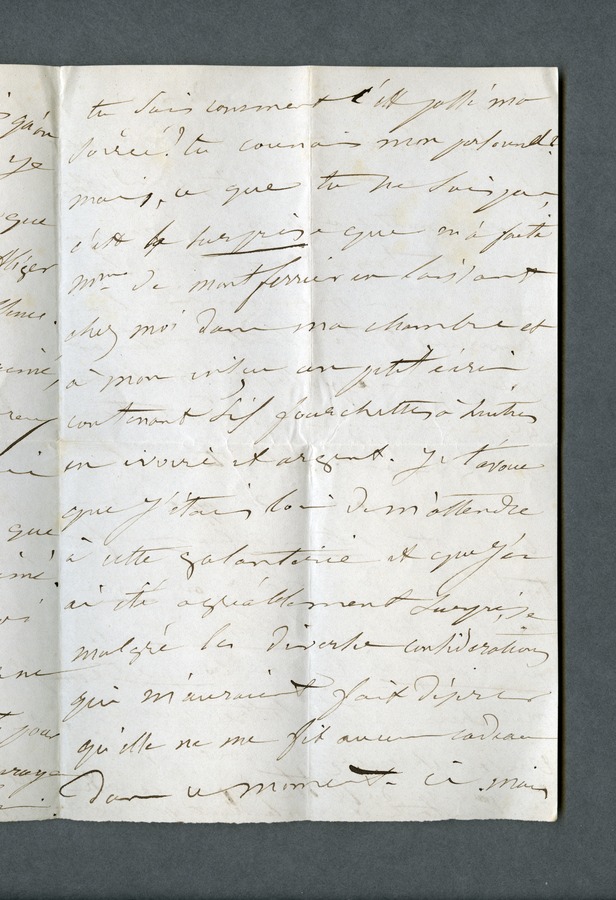 tu sais comment s'est passé ma
soirée? tu connais mon profond
mais, ce que tu ne sais pas,
c'est la surprise que m'a faite
Mme de montferrier en laissant
chez moi dans ma chambre et
à mon insu un petit écrin
contenant six fourchettes à huitres
en ivoire et argent. Je t'avoue
que j'étais loin de m'attendre
à cette galanterie et que j'en
ai été agréablement surprise
malgré les diverses considérations
qui m'auraient fait désirer
qu'elle ne me fit aucun cadeau
dans ce moment-ci mais
qu'on
je
que
que
ne
pour